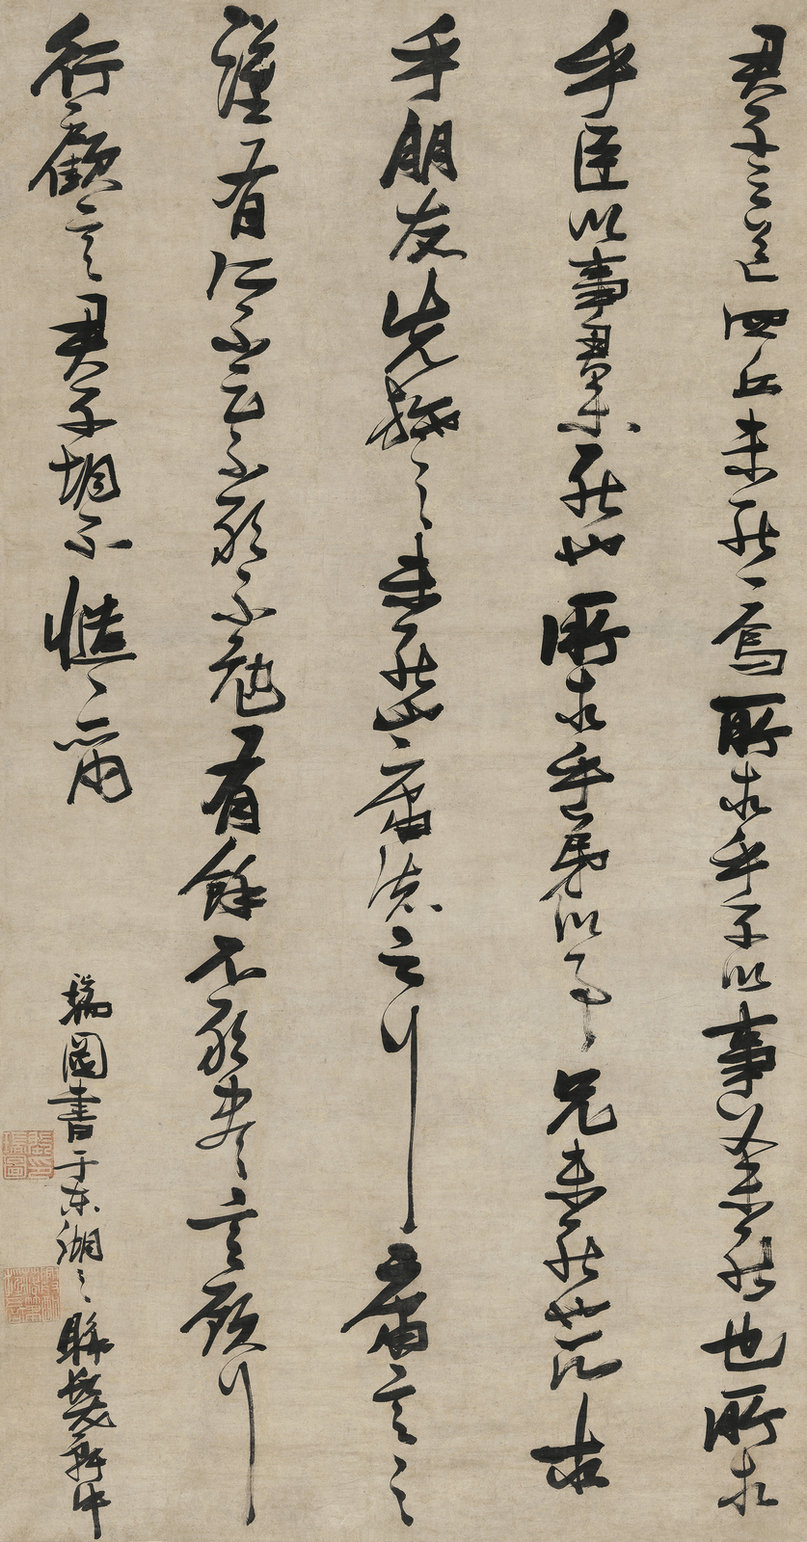 君子之道四丘未能一焉所求乎子以事父未能也所求
乎臣以事君未能也所求乎弟以事兄未能也所求
乎朋友先施之未能也庸德之行庸言之
謹有所不足不敢不勉有餘不敢盡言顧行
行顧言君子胡不慥慥爾
瑞圖書于東湖之聯軒中